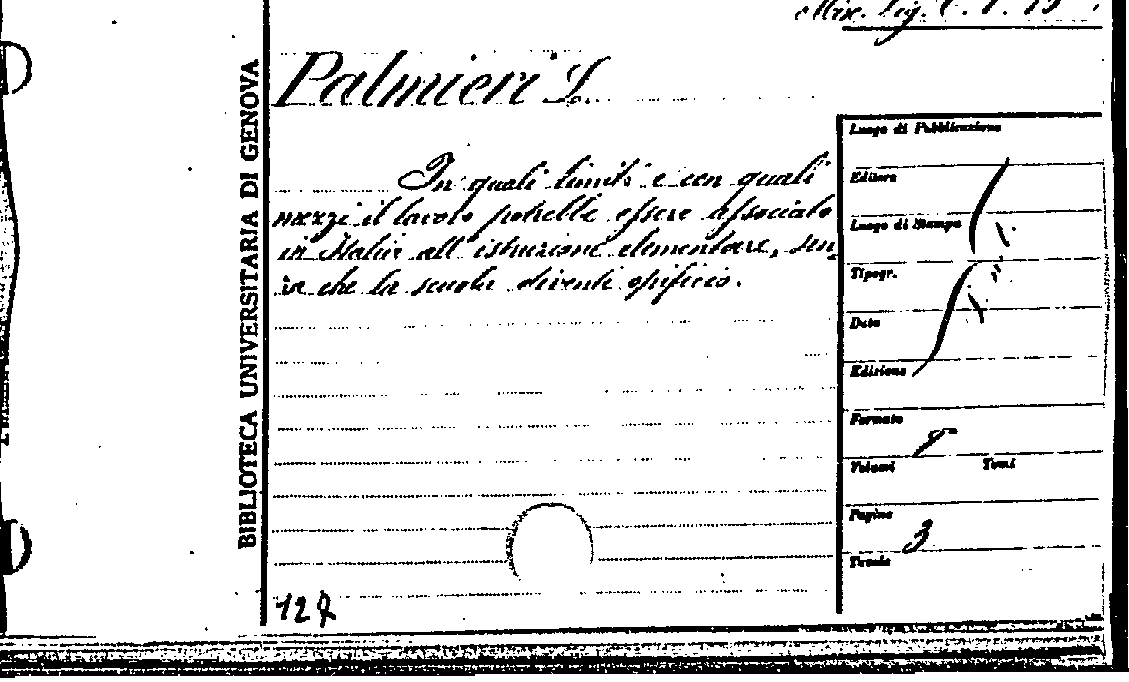 Misc. Lig. C. 1. 15
Palmieri L.
BIBLIOTECA UNIVERSITARIA DI GENOVA
In quali limiti e con quali
mezzi il lavoro potrebbe essere associato
in Italia all'istruzione elementare, sen-
za che la scuola diventi opificio.
Luogo di Pubblicazione
Editore
Luogo di Stampa
Tipogr.
Data
Edizione
Formato
8°
Volumi Tomi
Pagine
3
Tavole
127